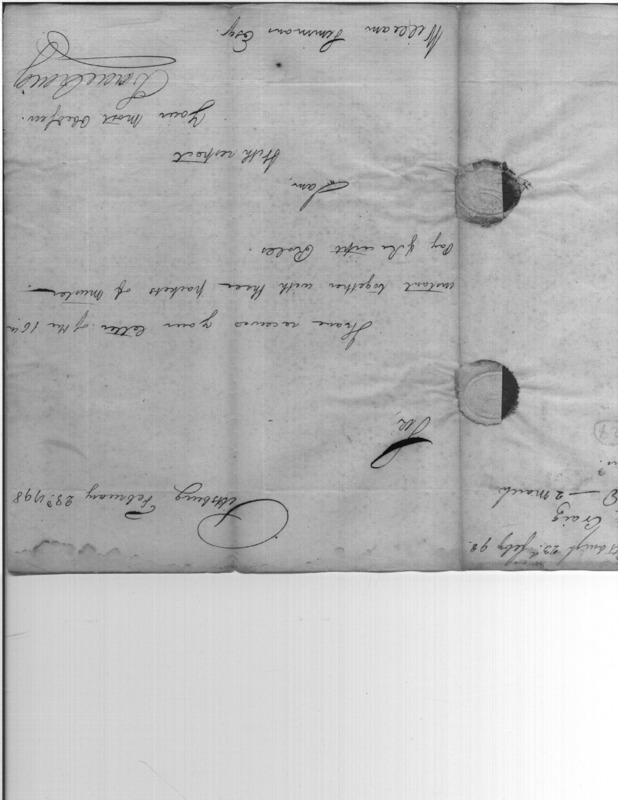 Pittsburg February 23d. 1798
Sir,
I have received your letter of the 16th
instant together with three packets of muster
Pay & Receipt Rolls.
I am,
With respect
Your most Obed Serv.
Isaac Craig
William Simmons Esqr.
23d. Feby 98.
Craig
2 March